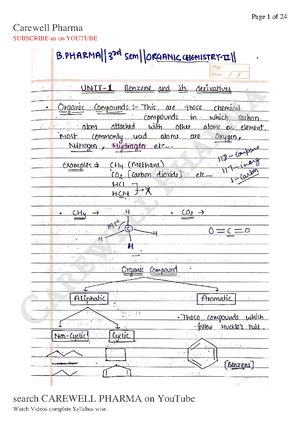 Page 1 of 24
Carewell Pharma
SUBSCRIBE us on YOUTUBE
B.PHARMA || 3rd Sem || ORGANIC CHEMISTRY-II ||
UNIT-1 Benzene and its derivatives
• Organic Compounds :- This are those chemical
compounds in which carbon
atom attached with other atoms or element.
Most commonly used atoms are Oxygen,
Nitrogen, Hydrogen etc...
Examples → CH4 (Methane)
CO2 (Carbon dioxide) etc...
HCl
HCN
118
117
1- Carbon
• CH4 →
• CO2 →
H
H C H
H
O=C=O
Organic Compound
Aliphatic
Aromatic
Non-Cyclic
Cyclic
• Those compounds which
follow Huckle's rule.
[Benzene]
CAREWELL PHARMA
search CAREWELL PHARMA on YouTube
Watch Videos complete Syllabus wise